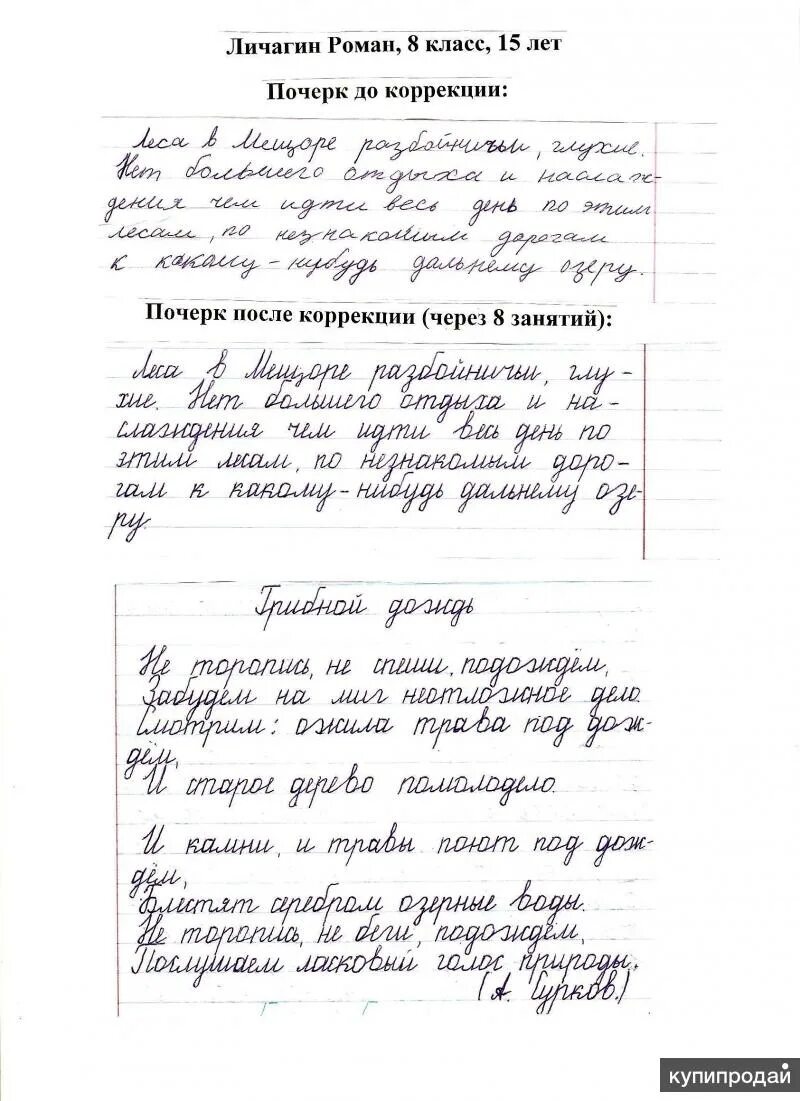 Личагин Роман, 8 класс, 15 лет
Почерк до коррекции:
Леса в Мещоре разбойничьи, глухие.
Нет большего отдыха и наслаж-
дения чем идти весь день по этим
лесам, по незнакомым дорогам
к какому-нибудь дальнему озеру.
Почерк после коррекции (через 8 занятий):
Леса в Мещоре разбойничьи, глу-
хие. Нет большего отдыха и на-
слаждения чем идти весь день по
этим лесам, по незнакомым доро-
гам к какому-нибудь дальнему озе-
ру.
Грибной дождь
Не торопись, не спеши, подождём,
Забудем на миг неотложное дело.
Смотрим: ожила трава под дож-
дём,
И старое дерево помолодело.
И камни, и травы поют под дож-
дём,
Блестят серебром озерные воды.
Не торопись, не беги, подождём,
Послушаем ласковый голос природы.
(А. Сурков.)
купипродай